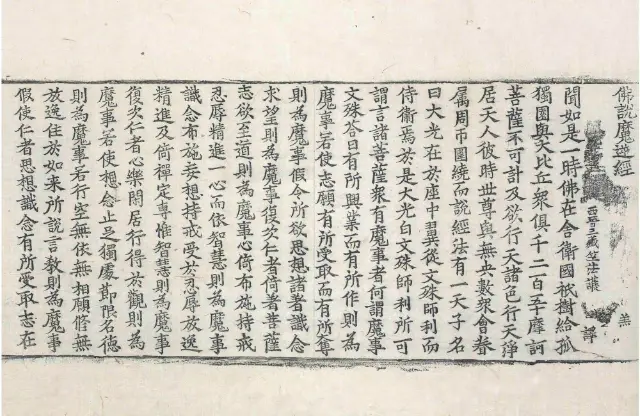 佛說魔逆經
西晉三藏竺法護 譯
聞如是一時佛在舍衛國祇樹給孤
獨園與大比丘衆俱千二百五十摩訶
菩薩不可計及欲行天諸色行天淨
居天人彼時世尊與無央數衆會眷
属周帀圍繞而說經法有一天子名
曰大光在於座中翼從文殊師利而
侍衛焉於是大光白文殊師利所可
謂言諸菩薩衆有魔事者何謂魔事
文殊荅曰有所興業而有所作則為
魔事若使志願有所受取而有所奪
則為魔事假令所欲思想諸著識念
求望則為魔事復次仁者倚著菩薩
志欲至道則為魔事心倚布施持戒
忍辱精進一心而依智慧則為魔事
識念布施妄想持戒受於忍辱放逸
精進及倚禪定專惟智慧則為魔事
復次仁者心樂閑居行行得於觀則為
魔事若使想念止足獨處節限名德
則為魔事若行空無依無相願修無
放逸住於如來所說言教則為魔事
假使仁者思想識念有所受取志在